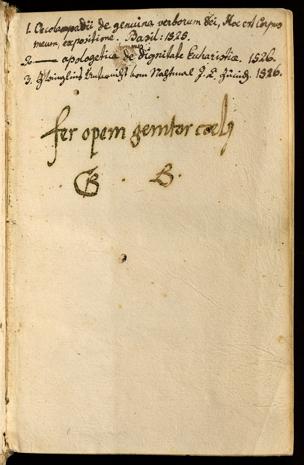 1. Oecolampadii de genuina verborum dei, Hoc est Corpus
meum, expositione. Basil: 1525.
2. —— apologetica de Dignitate Eucharistiæ. 1526.
3. Zwinglius Unterricht vom Nachtmal J. C. Zürich. 1526.
fer opem genitor coeli
B B.